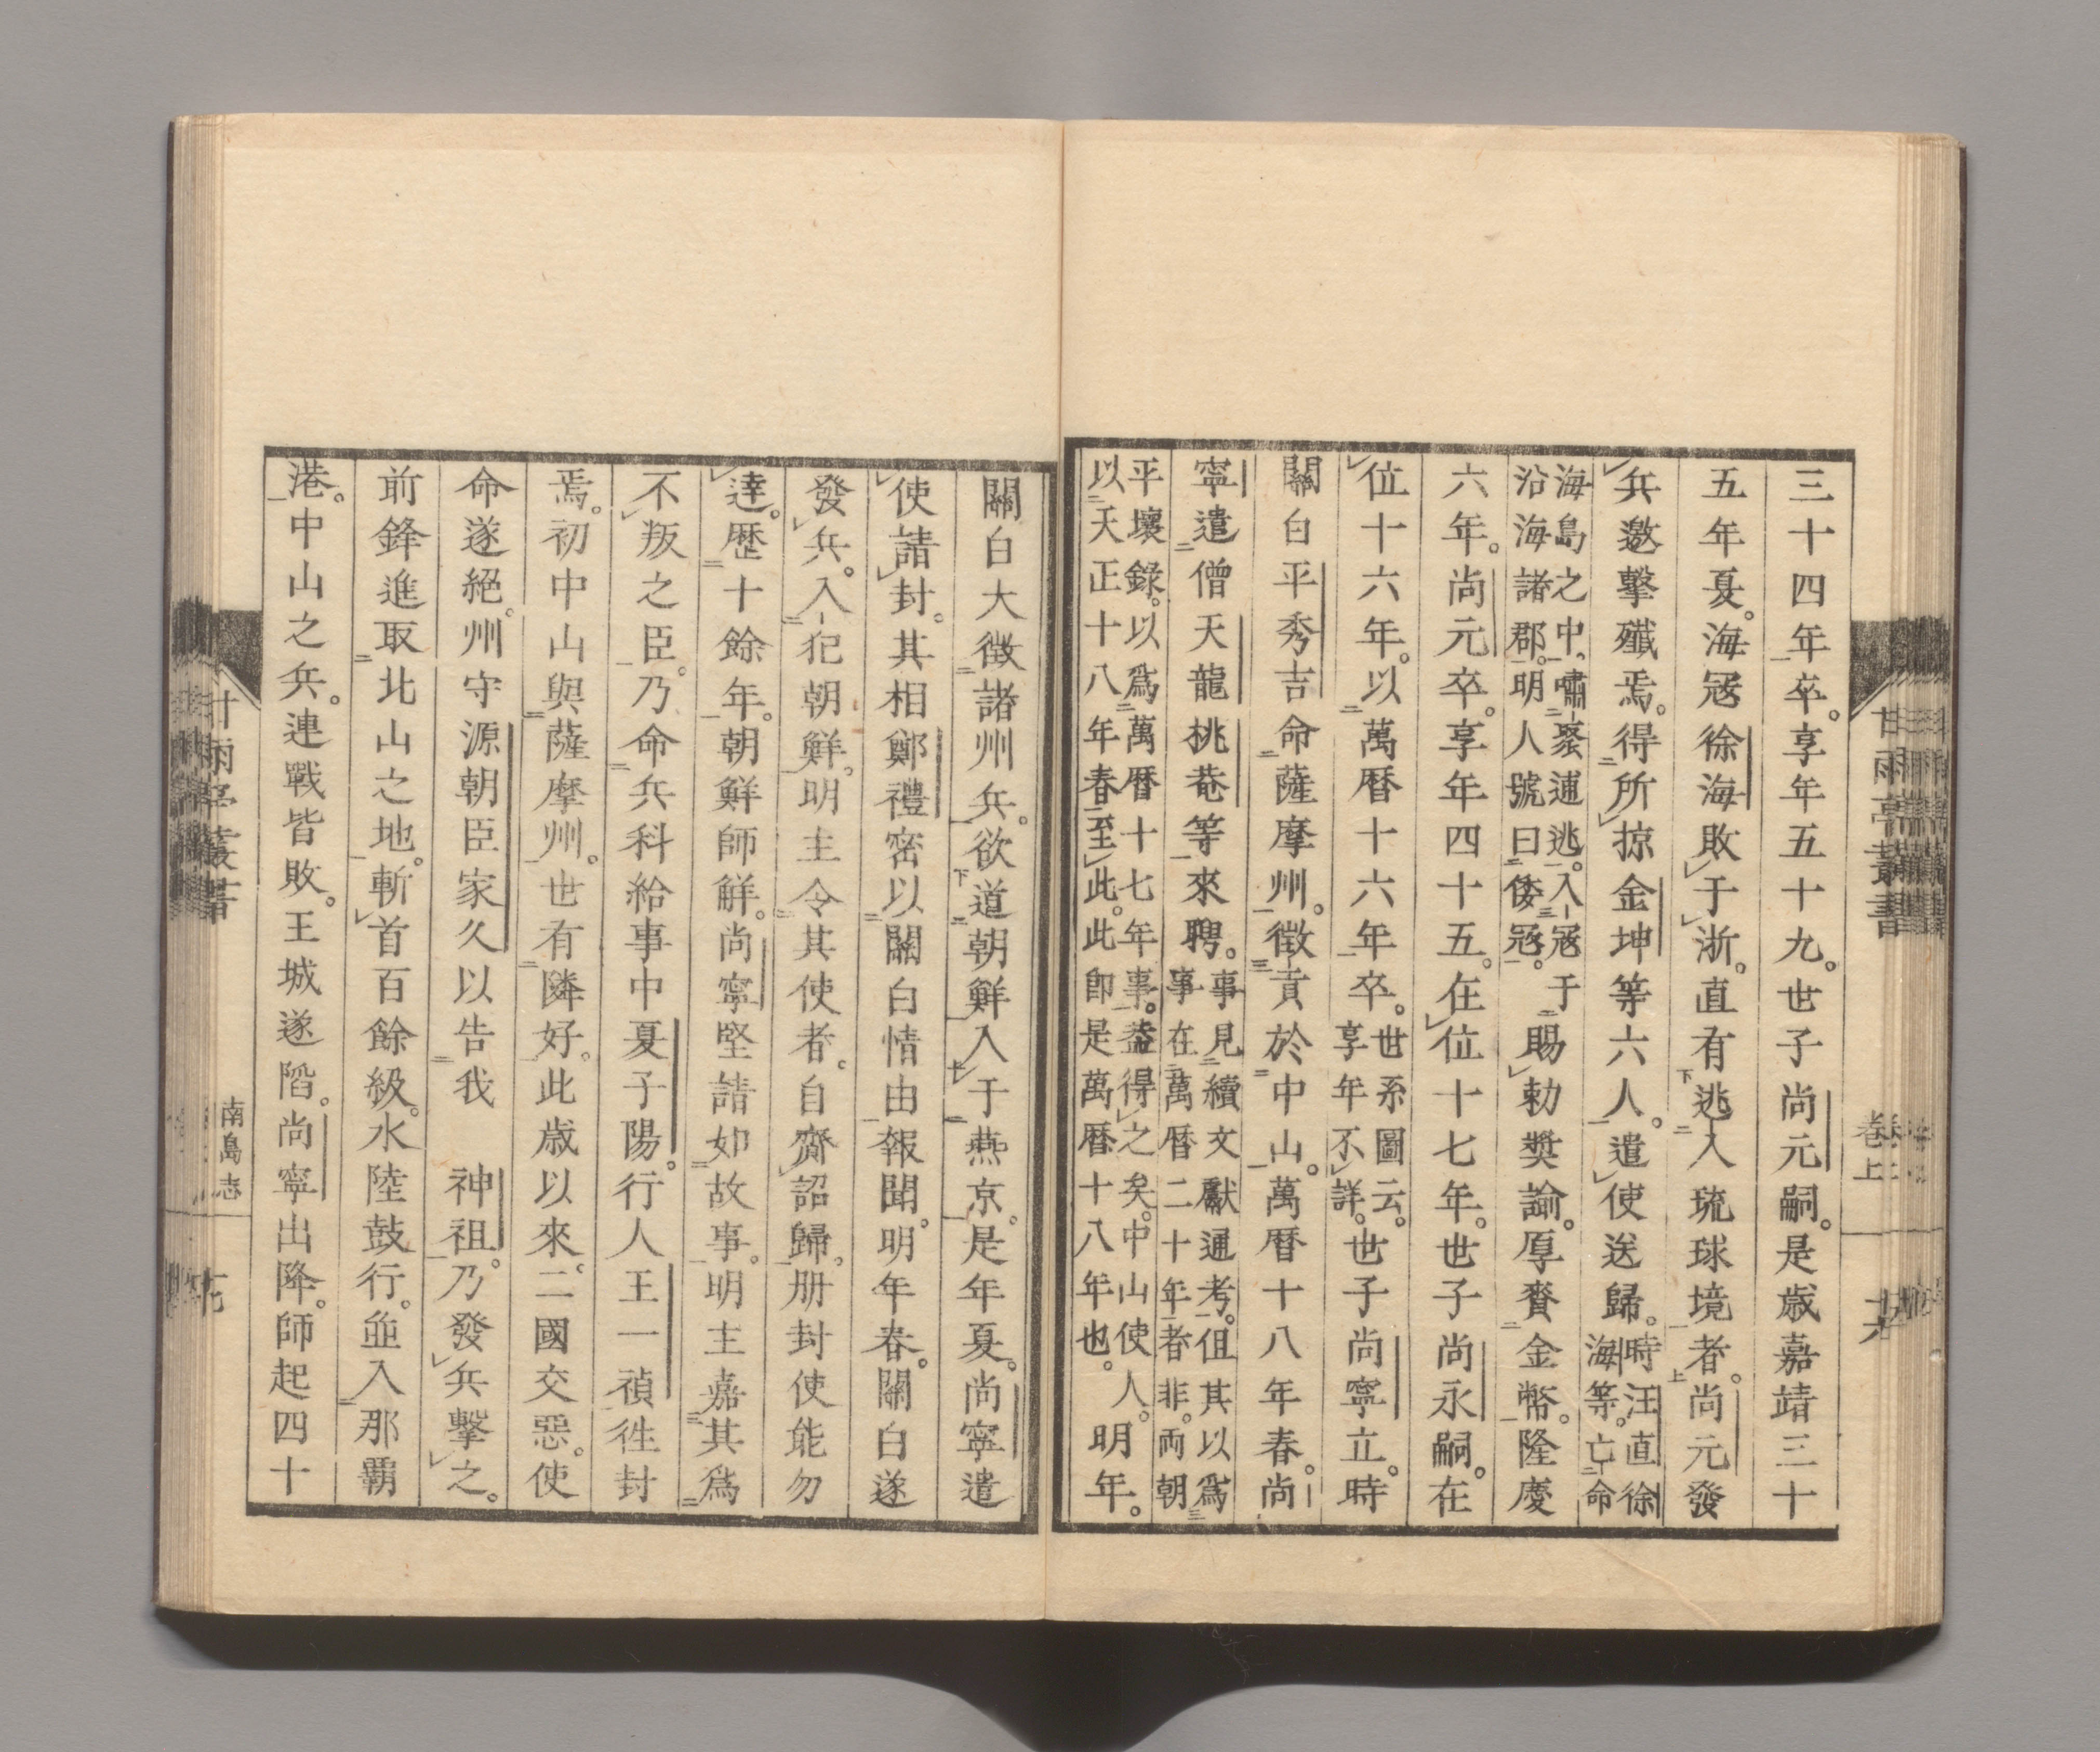 三十四年卒。享年五十九。世子尚元嗣。是歲嘉靖三十
五年夏。海冦徐海敗于浙。直有逃入琉球境者。尚元發
兵邀擊殲焉。得所掠金坤等六人。遣使送歸。時汪直徐
海等。亡命
海島之中、嘯聚逋逃。入冦于
沿海諸郡。明人號曰倭冦。賜勅奬諭。厚賚金幣。隆慶
六年。尚元卒。享年四十五。在位十七年。世子尚永嗣。在
位十六年。以萬曆十六年卒。世系圖云。
享年不詳。世子尚寧立。時
關白平秀吉命薩摩州。徵貢於中山。萬曆十八年春。尚
寧遣僧天龍桃菴等來聘。事見續文獻通考。但其以爲
事在萬曆二十年者非。両朝
平壤錄。以爲萬曆十七年事。葢得之矣。中山使人。
以天正十八年春至此。此即是萬曆十八年也。明年。
關白大徵諸州兵。欲道朝鮮入于燕京。是年夏。尚寧遣
使請封。其相鄭禮密以關白情由報聞。明年春。關白遂
發兵。入犯朝鮮。明主令其使者。自齎詔歸。册封使能勿
達。歷十餘年。朝鮮師解。尚寧堅請如故事。明主嘉其爲
不叛之臣。乃命兵科給事中夏子陽。行人王一禎徃封
焉。初中山與薩摩州。世有隣好。此歲以來。二國交惡。使
命遂絕。州守源朝臣家久以告我 神祖。乃發兵擊之。
前鋒進取北山之地。斬首百餘級。水陸鼓行。並入那覇
港。中山之兵。連戰皆敗。王城遂陷。尚寧出降。師起四十
甘雨亭叢書
卷上
甘雨亭叢書
南島志